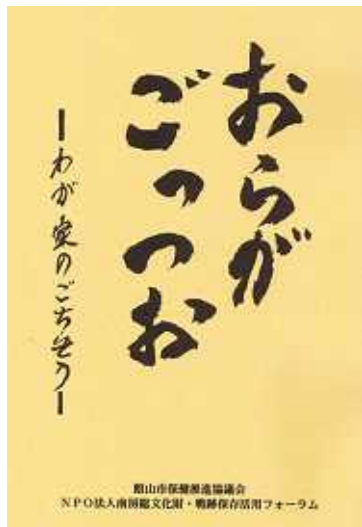 おらが
ごっつお
ーわが家のごちそうー
館山市保健推進協議会
NPO法人南房総文化財・戦跡保存活用フォーラム